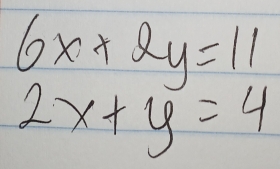 6x + 2y = 11
2x + y = 4